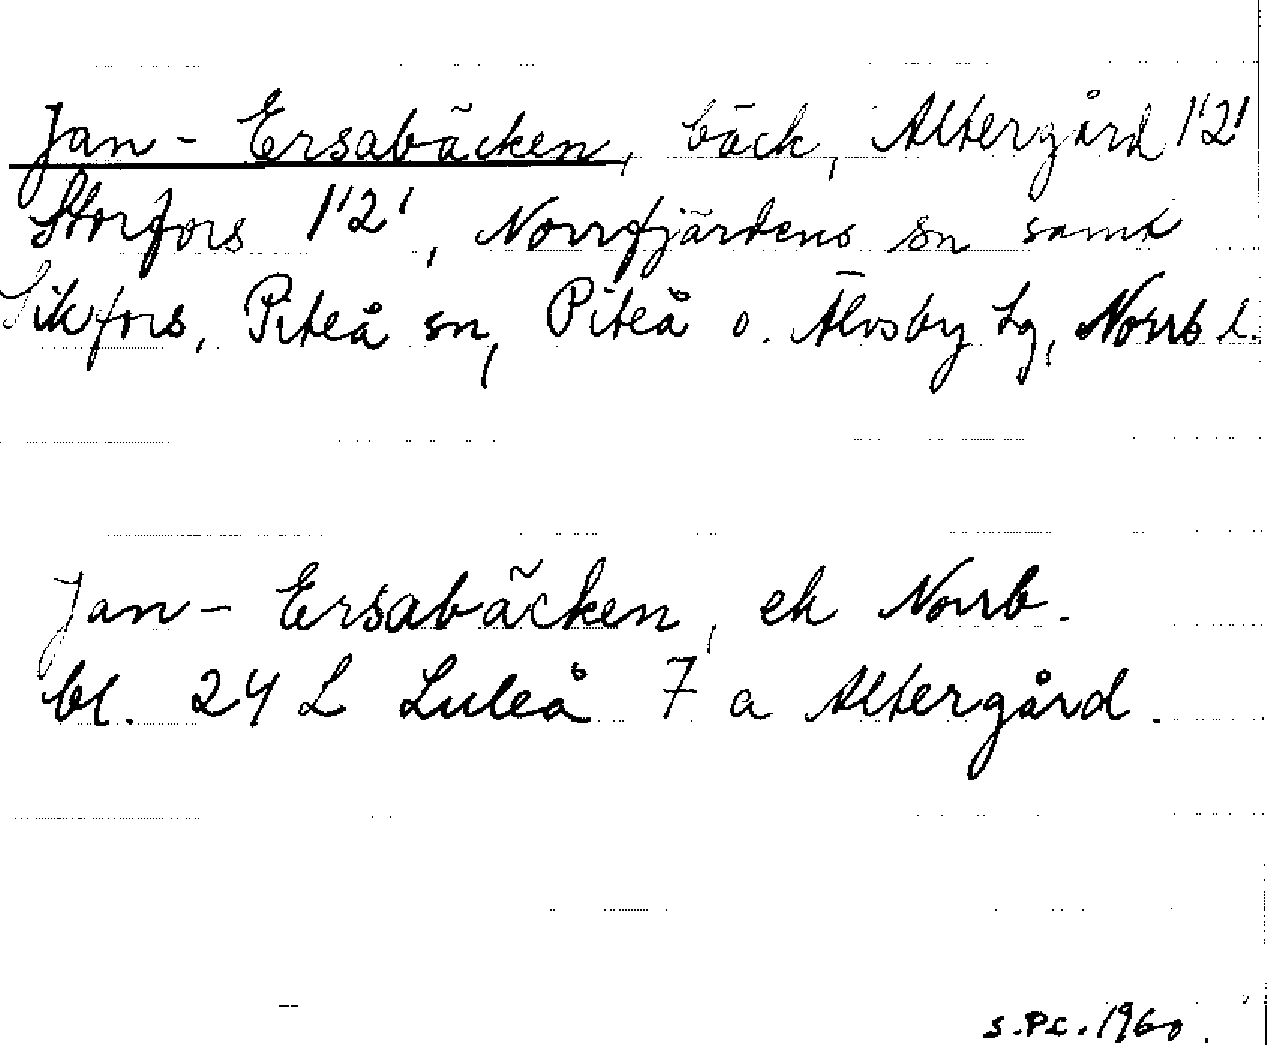 Jan-Ersabäcken, bäck, Altergård 1'2'
Storfors 1'2', Norrfjärdens sn samt
Sikfors, Piteå sn, Piteå o. Älvsby tg, Norrb l.
Jan-Ersabäcken, ek Norrb.
bl. 24 L Luleå 7 a Altergård.
S.P.C. 1960.